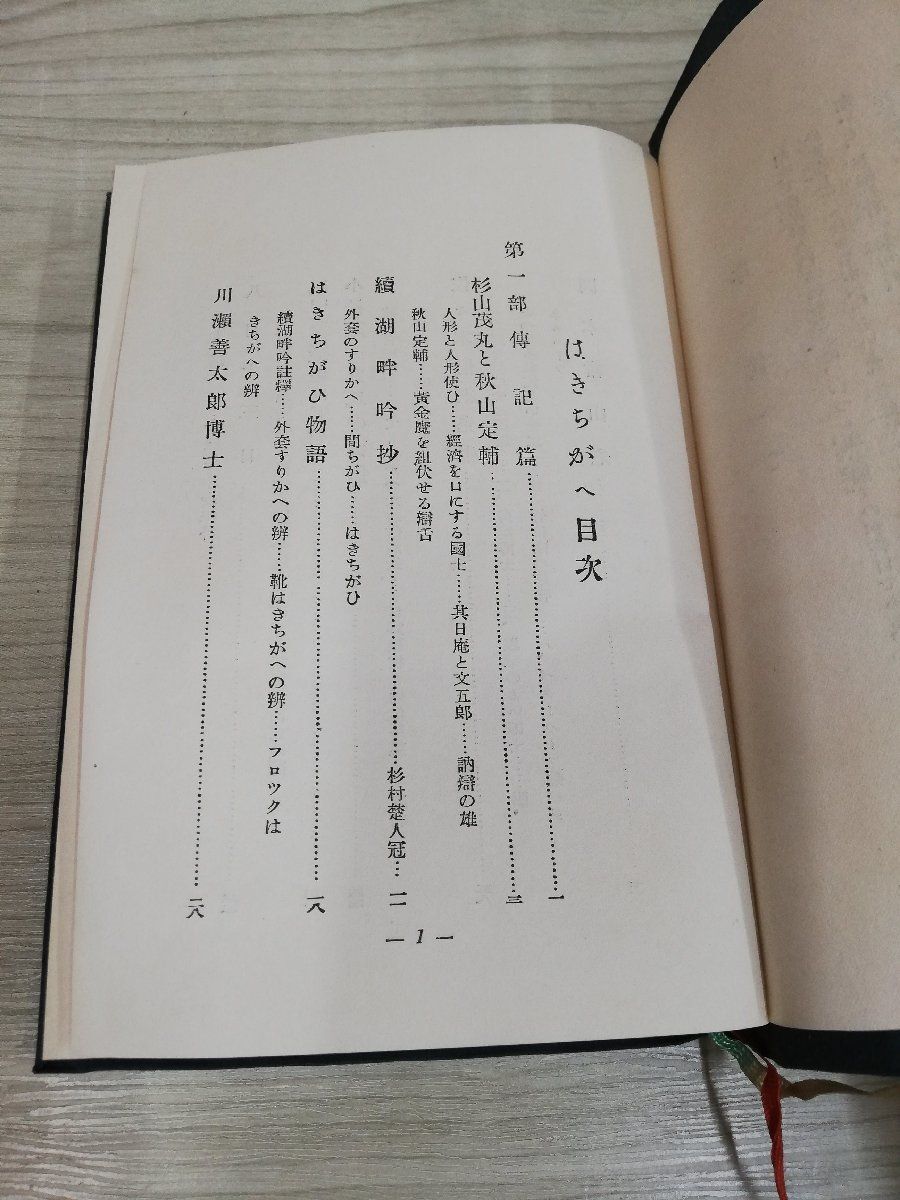 はきちがへ目次
第一部 傳記篇……………………一
杉山茂丸と秋山定輔……………………三
人形と人形使ひ……經濟を口にする國士……其日庵と文五郎……訥辯の雄
秋山定輔……黃金魔を組伏せる辯舌
續湖畔吟抄……………………杉村楚人冠…一一
外套のすりかへ……間ちがひ……はきちがひ
はきちがひ物語……………………一八
續湖畔吟註釋……外套すりかへの辨……靴はきちがへの辨……フロツクは
きちがへの辨
川瀨善太郎博士……………………二八
— 1 —